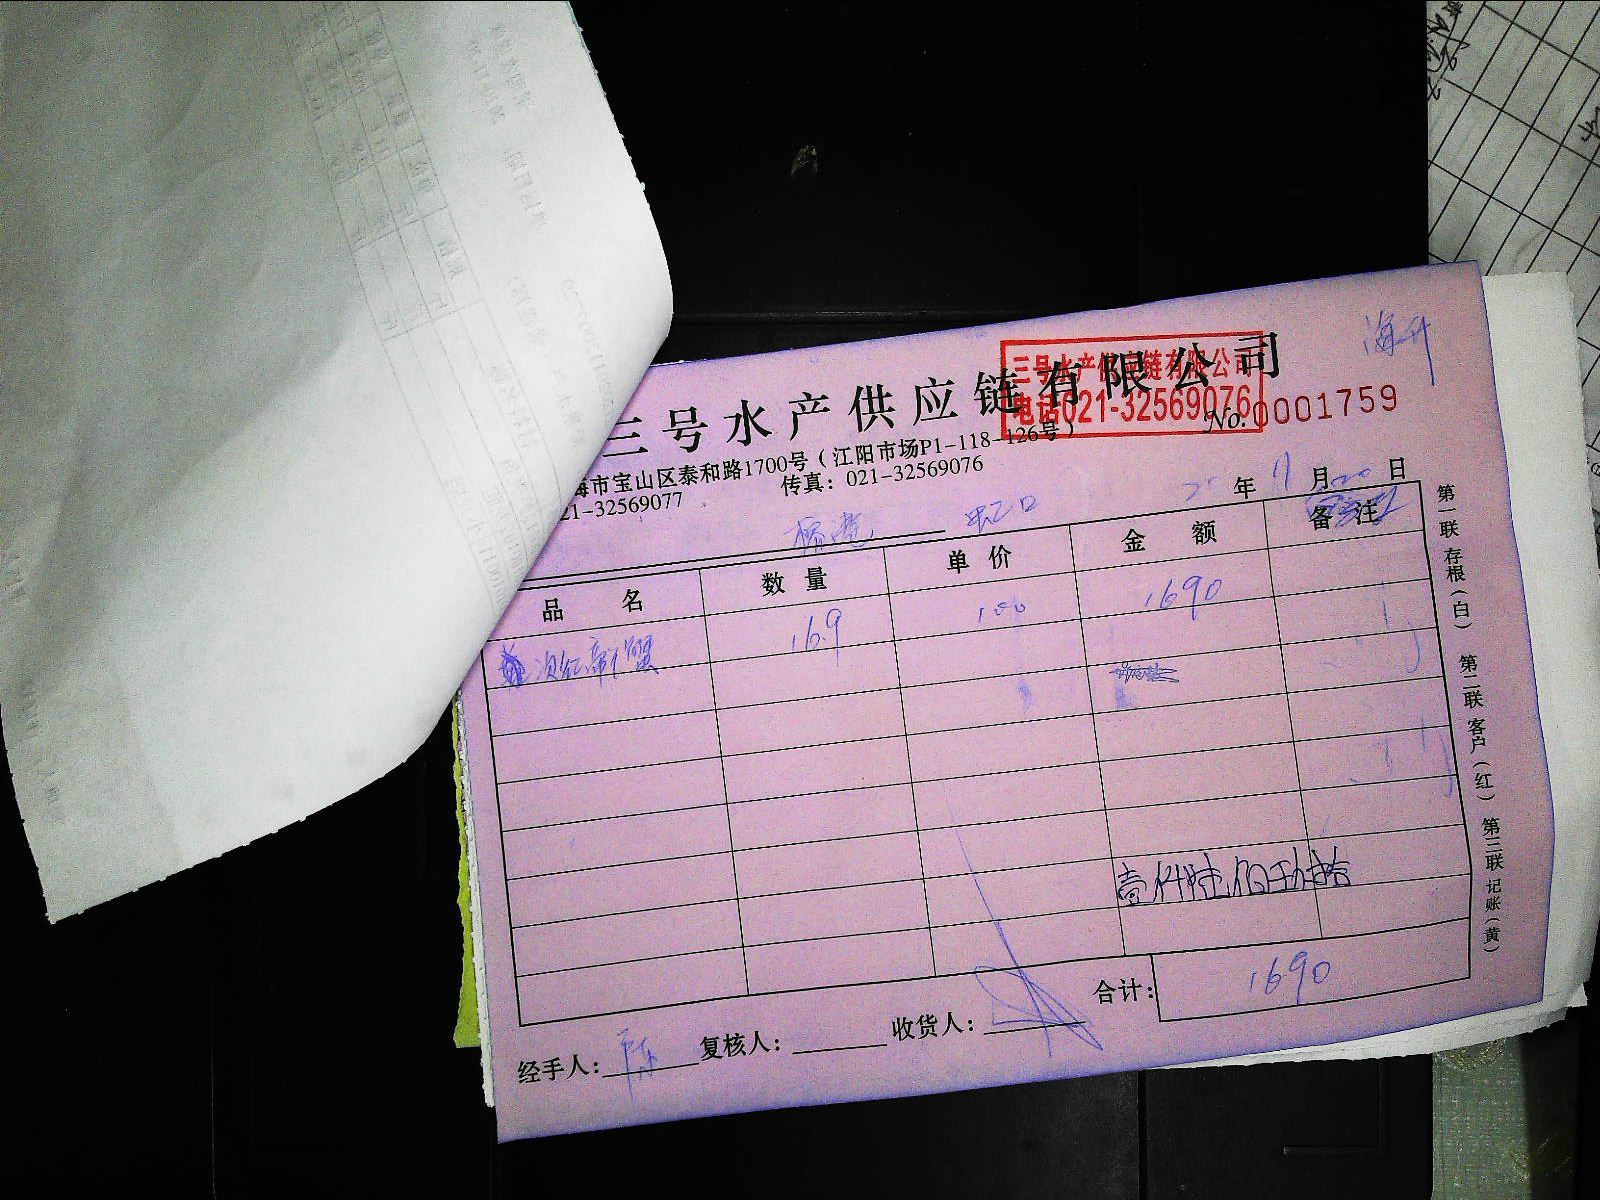 海升
三号水产供应链有限公司
三号水产供应链有限公司
电话021-32569076
No.0001759
海市宝山区泰和路1700号（江阳市场P1-118-126号）
21-32569077 传真：021-32569076
年 11 月 20 日
虹口
品名 数量 单价 金额 备注
红帝王蟹 16.9 100 1690
壹仟陆佰玖拾
合计：1690
经手人：陈 复核人： 收货人：
第一联 存根（白） 第二联 客户（红） 第三联 记账（黄）